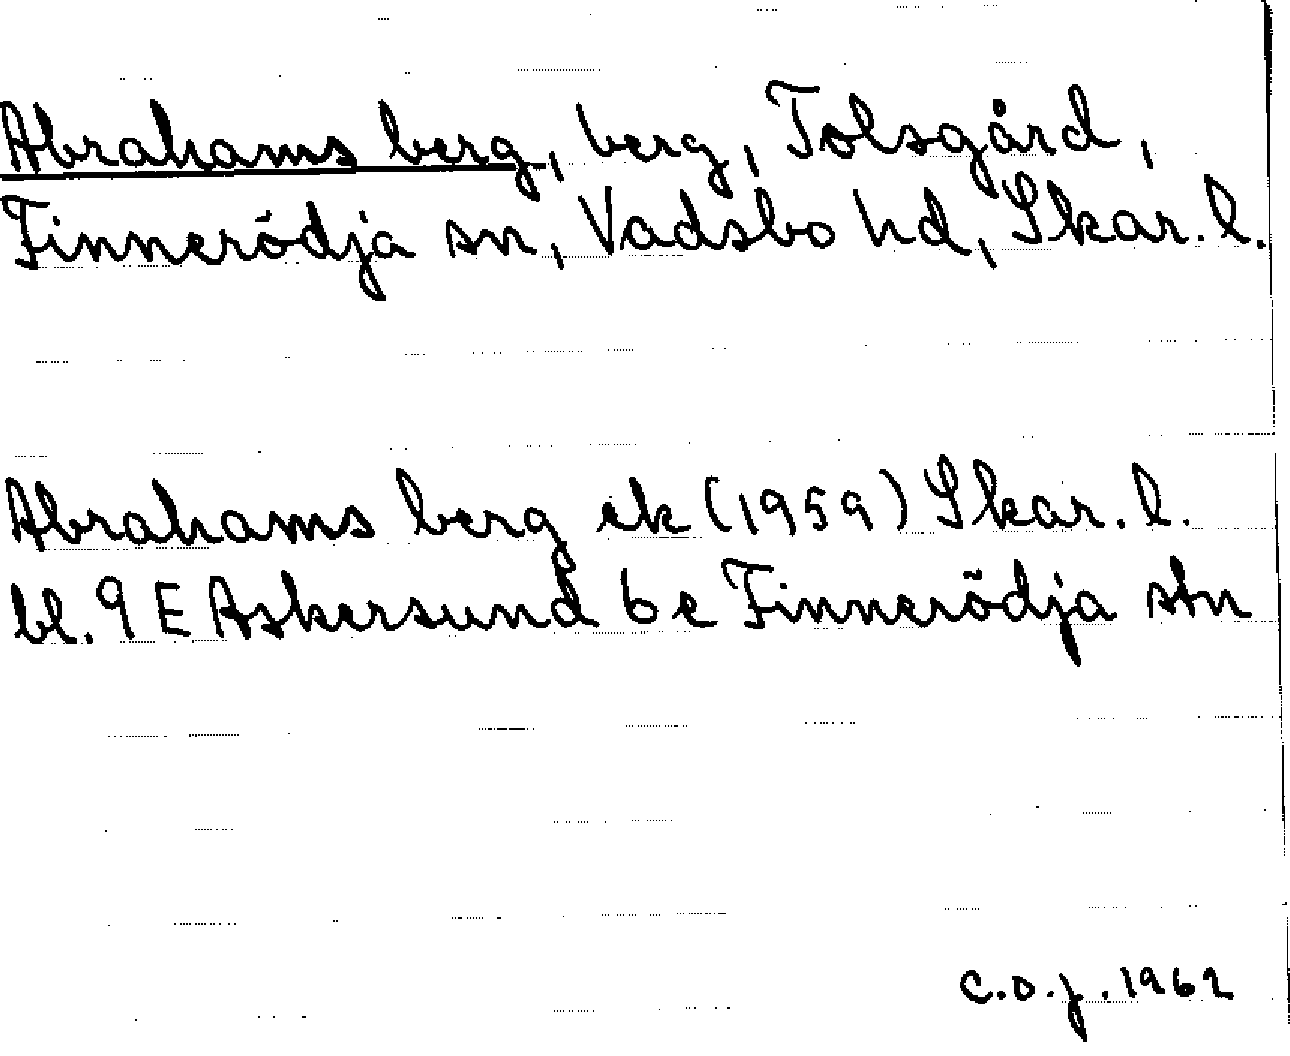 Abrahams berg, berg, Tolsgård,
Finnerödja sn, Vadsbo hd, Skar. l.
Abrahams berg ek (1959) Skar. l.
bl. 9 E Askersund 6 e Finnerödja stn
C.O.J. 1962